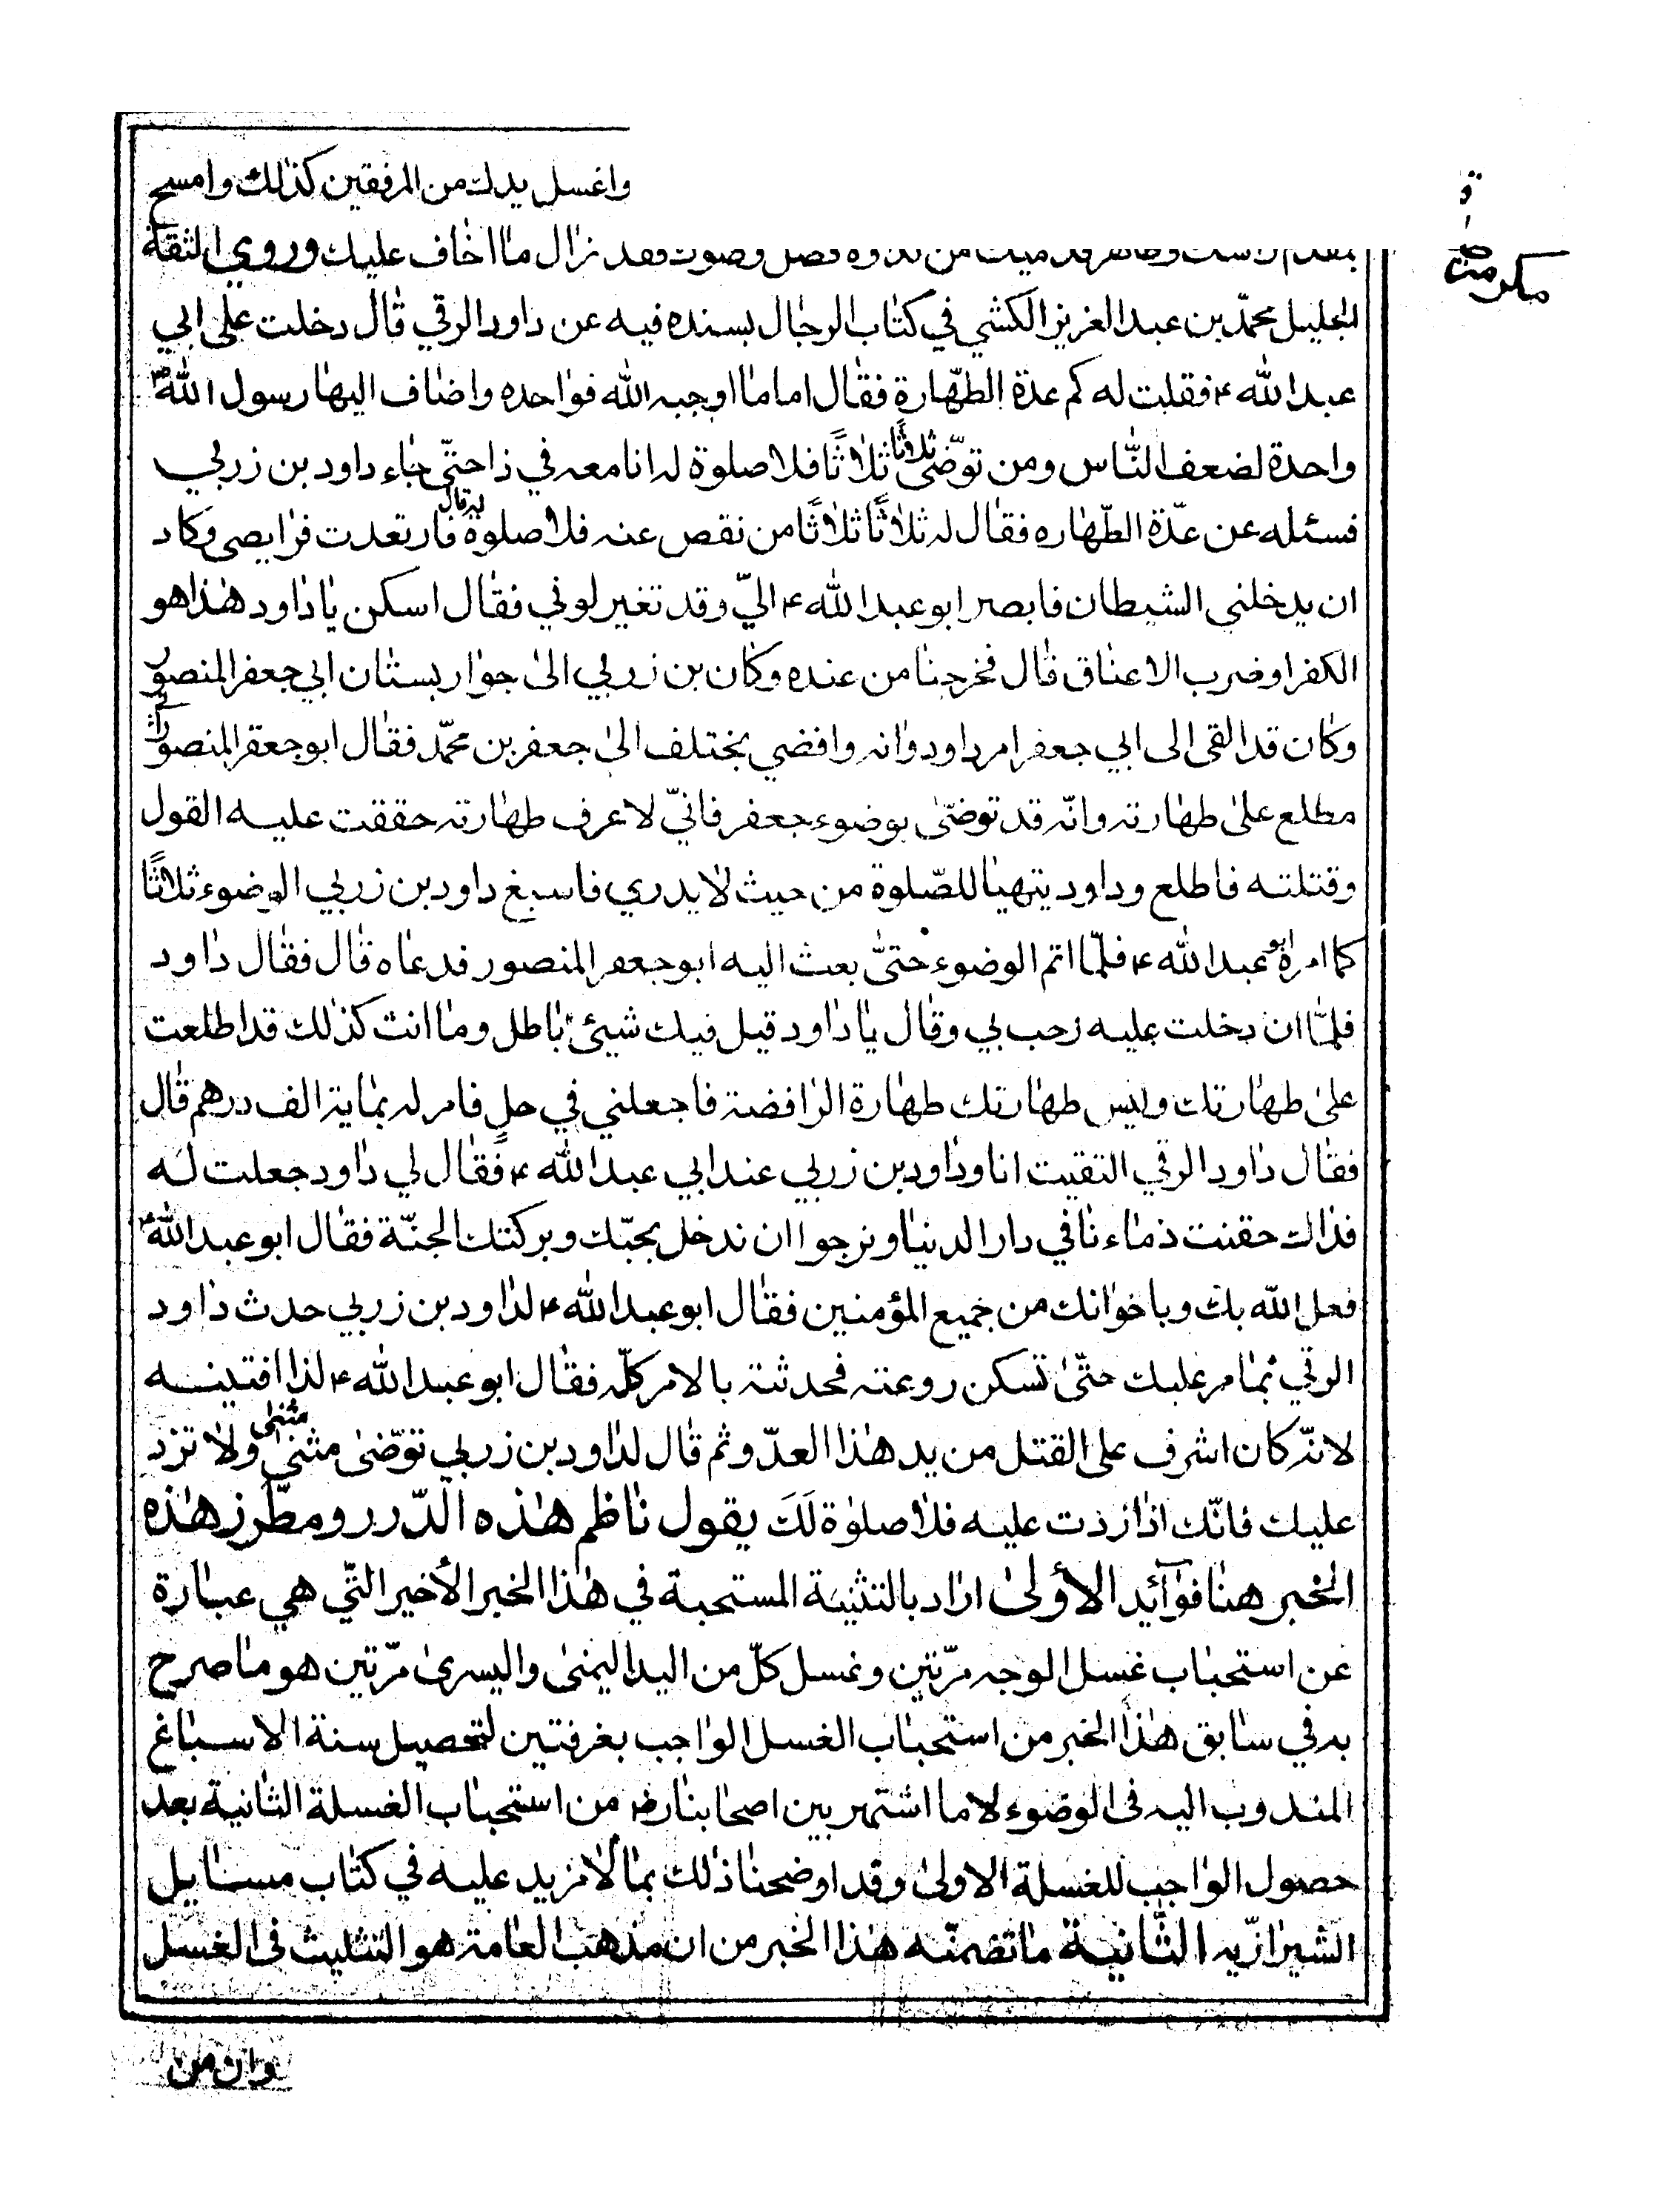 واغسل يدك من المرفقين كذلك وامسح
فقد زال ما اخاف عليك وروي الثقة
الجليل محمّد بن عبد العزيز الكشي في كتاب الرجال بسنده فيه عن داود الرقي قال دخلت على ابي
عبد الله ع فقلت له كم عدة الطّهارة فقال اما ما اوجبه الله فواحده واضاف اليها رسول الله ص
واحدة لضعف النّاس ومن توضّى ثلاثًا ثلاثًا فلا صلوة له انا معه في ذا حتّى جاء داود بن زربي
فسئله عن عدّة الطّهاره فقال له ثلاثًا ثلاثًا من نقص عنه فلا صلوة له قال فارتعدت فرايصي وكاد
ان يدخلني الشيطان فابصر ابو عبد الله ع اليّ وقد تغير لوني فقال اسكن يا داود هذا هو
الكفر او ضرب الاعناق قال فخرجنا من عنده وكان بن زربي الى جوار بستان ابي جعفر المنصور
وكان قد القى الى ابي جعفر امر داود وانه رافضي يختلف الى جعفر بن محمّد فقال ابو جعفر المنصور انّي
مطلع على طهارته وانّه قد توضّى بوضوء جعفر فانيّ لا عرف طهارته حققت عليه القول
وقتلته فاطلع وداود يتهيا للصّلوة من حيث لا يدري فاسبغ داود بن زربي الوضوء ثلاثًا
كما امره ابو عبد الله ع فلمّا اتم الوضوء حتّى بعث اليه ابو جعفر المنصور فدعاه قال فقال داود
فلمّا ان دخلت عليه رحب بي وقال يا داود قيل فيك شيئ باطل وما انت كذلك قد اطلعت
على طهارتك وليس طهارتك طهارة الرافضة فاجعلني في حلٍ فامر له بماية الف درهم قال
فقال داود الرقي التقيت انا وداود بن زربي عند ابي عبد الله ع فقال لي داود جعلت له
فداك حقنت دماءنا في دار الدنيا ونرجوا ان ندخل بحبّك وبركتك الجنّة فقال ابو عبد الله ع
فعل الله بك وباخوانك من جميع المؤمنين فقال ابو عبد الله ع لداود بن زربي حدث داود
الرقي بما مر عليك حتّى تسكن روعته فحدثته بالامر كلّه فقال ابو عبد الله ع لذا افتيته
لانّه كان اشرف على القتل من يد هذا العدّو ثم قال لداود بن زربي توضّى مثنى مثنى ولا تزد
عليك فانّك اذا زدت عليه فلا صلوة لَكَ يقول ناظم هذه الدّرر ومطّرز هذه
الخبر هنا فوآئد الأولى اراد بالتثنية المستحبة في هذا الخبر الأخير التّي هي عبارة
عن استحباب غسل الوجه مرّتين وغسل كلّ من اليد اليمنى واليسرى مرّتين هو ما صرح
به في سابق هذا الخبر من استحباب الغسل الواجب بغرفتين لتحصيل سنة الاسباغ
المندوب اليه في الوضوء لا ما اشتهر بين اصحابنا رض من استحباب الغسلة الثانية بعد
حصول الواجب للغسلة الاولى وقد اوضحنا ذلك بما لا مزيد عليه في كتاب مسايل
الشيرازيه الثّانية ما تضمنّه هذا الخبر من ان مذهب العامة هو التثليث في الغسل
وان من